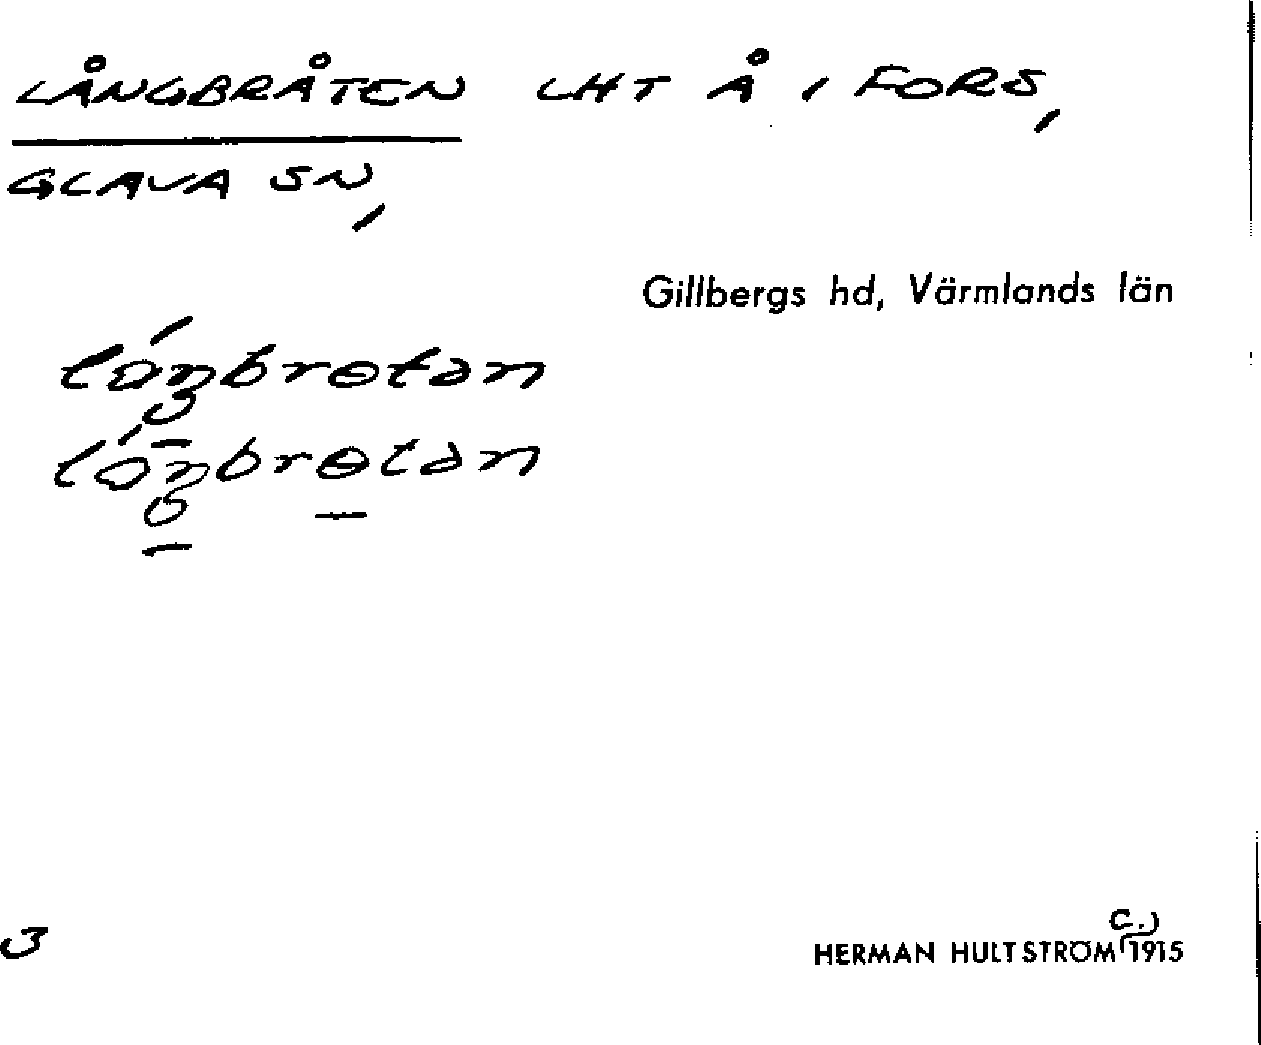 LÅNGBRÅTEN LHT Å I FORS,
GLAVA SN,
Gillbergs hd, Värmlands län
lóŋbrɵtan
lóŋbrɵtan
3
HERMAN HULTSTRÖM C.) 1915